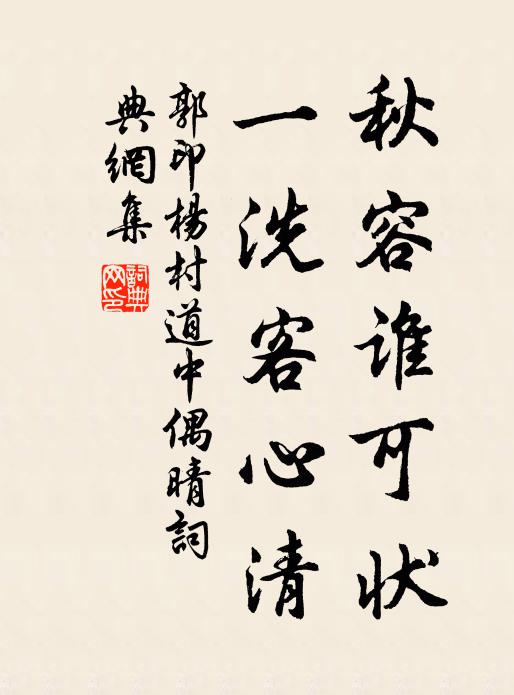 秋容谁可状
一洗客心清
郭印杨村道中偶晴詞
典網集
詞典
网印